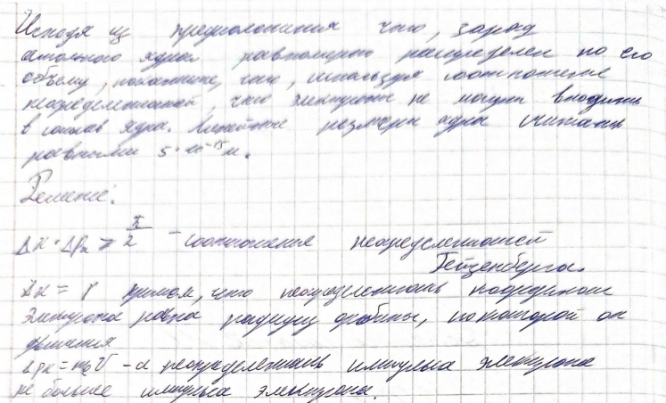 Исходя из предположения что, заряд
атомного ядра равномерно распределен по его
объему, покажите, что, используя соотношение
неопределенностей, что электроны не могут входить
в состав ядра. Линейные размеры ядра считать
равными 5·10⁻¹⁵ м.
Решение:
Δx · Δpₓ ≥ ħ/2 - соотношение неопределенностей
Гейзенберга.
Δx = r примем, что неопределенность координаты
электрона равна радиусу орбиты, по которой он
движения
Δpₓ = m₀V - а неопределенность импульса электрона
не больше импульса электрона.